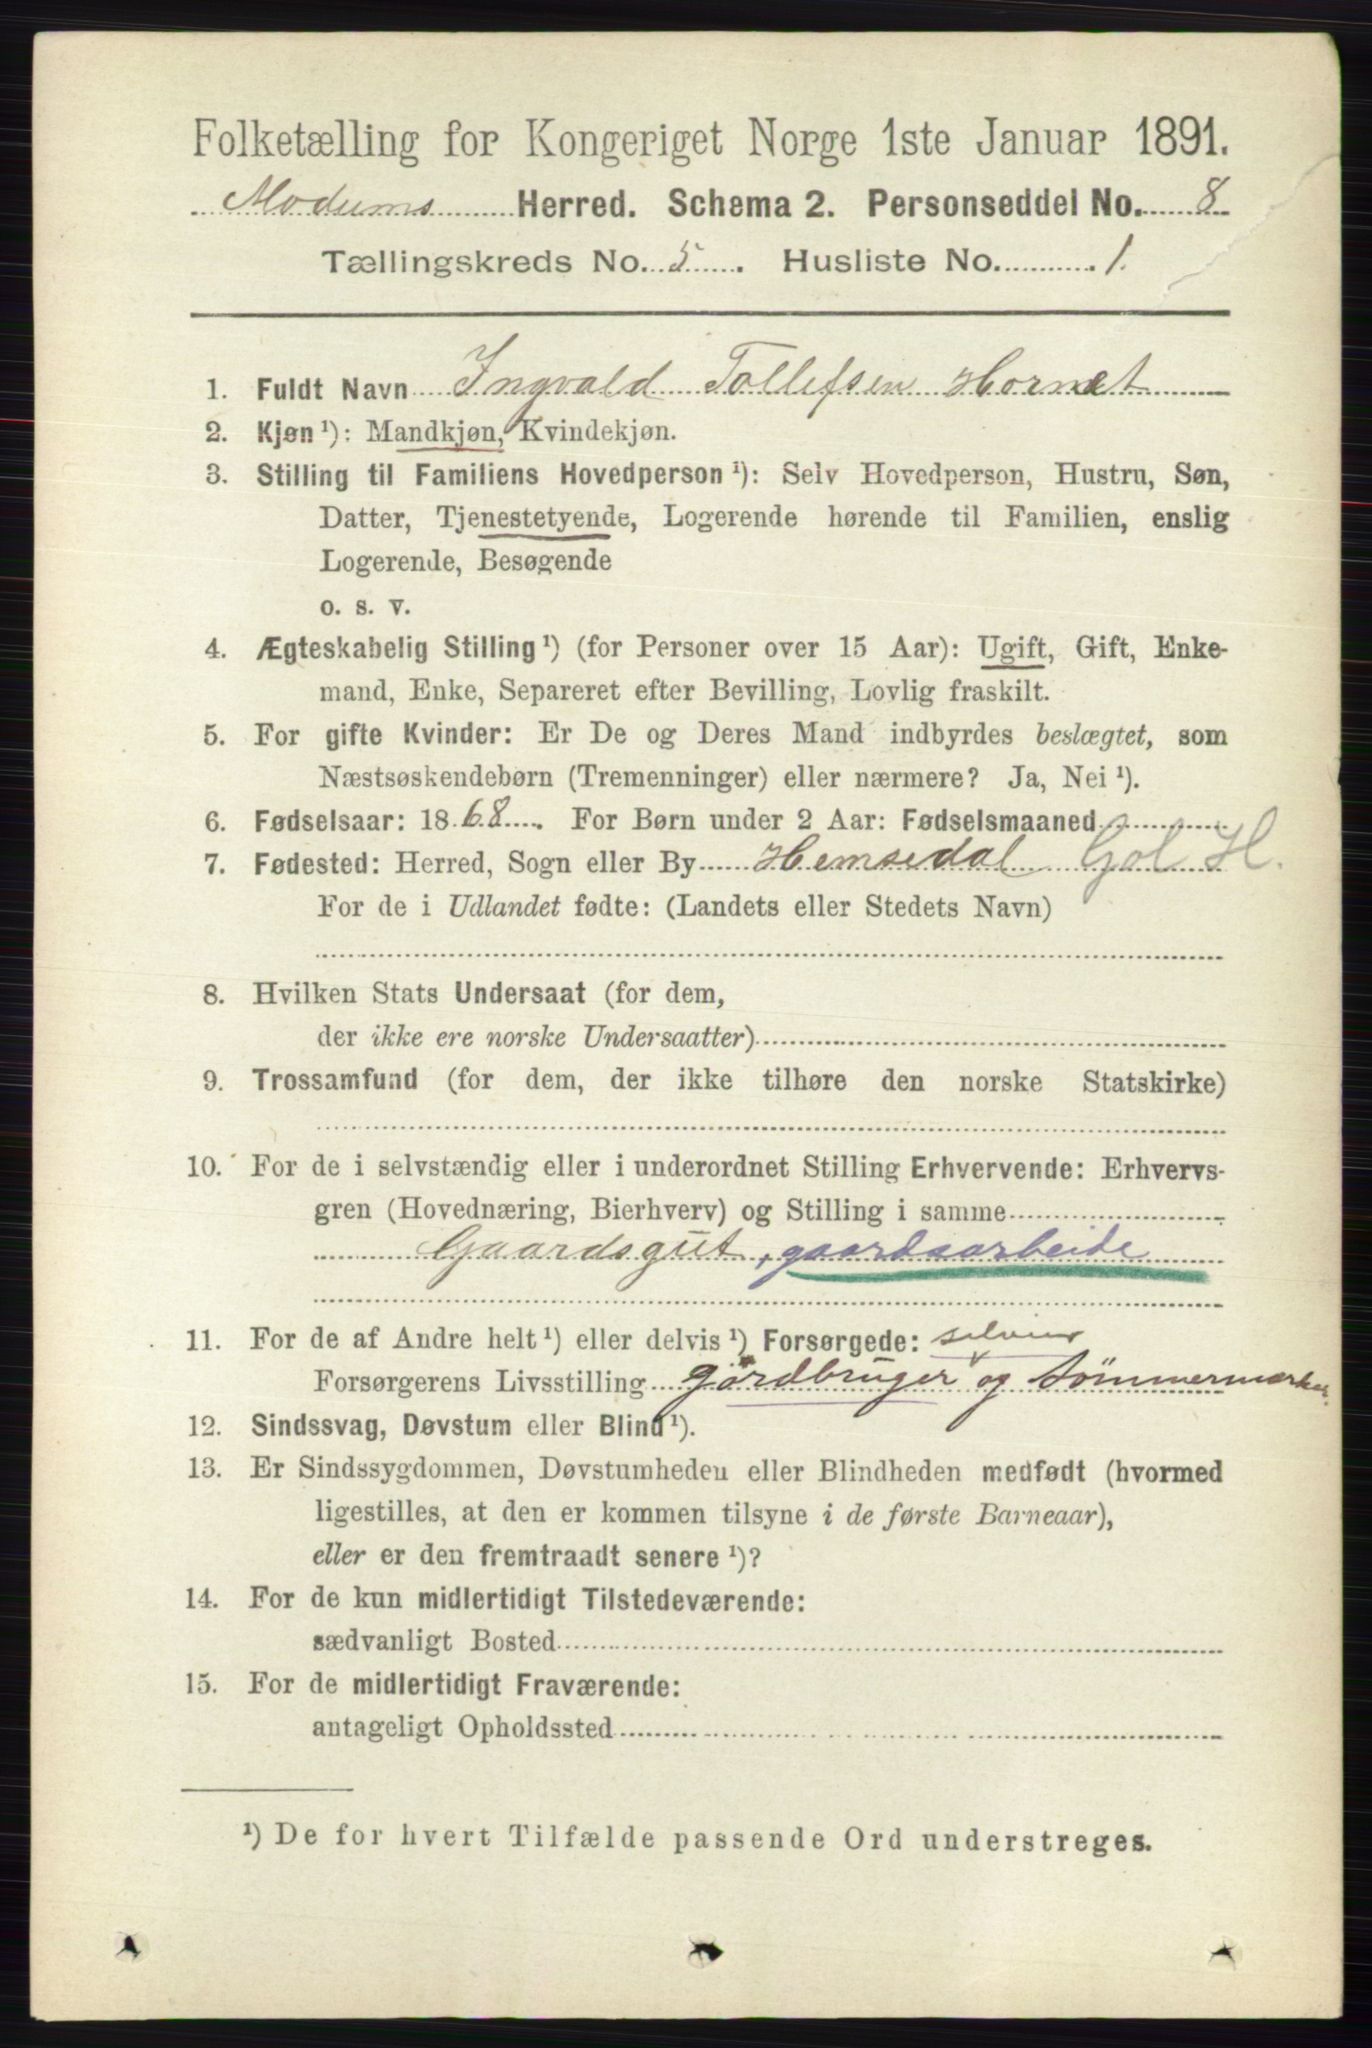 Folketælling for Kongeriget Norge 1ste Januar 1891.
Modums Herred. Schema 2. Personseddel No. 8
Tællingskreds No. 5. Husliste No. 1.
1. Fuldt Navn Ingvald Tollefsen Hornet
2. Kjøn ¹): Mandkjøn, Kvindekjøn.
3. Stilling til Familiens Hovedperson ¹): Selv Hovedperson, Hustru, Søn,
Datter, Tjenestetyende, Logerende hørende til Familien, enslig
Logerende, Besøgende
o. s. v.
4. Ægteskabelig Stilling ¹) (for Personer over 15 Aar): Ugift, Gift, Enke-
mand, Enke, Separeret efter Bevilling, Lovlig fraskilt.
5. For gifte Kvinder: Er De og Deres Mand indbyrdes beslægtet, som
Næstsøskendebørn (Tremenninger) eller nærmere? Ja, Nei ¹).
6. Fødselsaar: 1868. For Børn under 2 Aar: Fødselsmaaned
7. Fødested: Herred, Sogn eller By Hemsedal Gol H.
For de i Udlandet fødte: (Landets eller Stedets Navn)
8. Hvilken Stats Undersaat (for dem,
der ikke ere norske Undersaatter)
9. Trossamfund (for dem, der ikke tilhøre den norske Statskirke)
10. For de i selvstændig eller i underordnet Stilling Erhvervende: Erhvervs-
gren (Hovednæring, Bierhverv) og Stilling i samme
Gaardsgut, gaardsarbeide
11. For de af Andre helt ¹) eller delvis ¹) Forsørgede:
Forsørgerens Livsstilling gårdbruger og tømmermærker
12. Sindssvag, Døvstum eller Blind ¹).
13. Er Sindssygdommen, Døvstumheden eller Blindheden medfødt (hvormed
ligestilles, at den er kommen tilsyne i de første Barneaar),
eller er den fremtraadt senere ¹)?
14. For de kun midlertidigt Tilstedeværende:
sædvanligt Bosted
15. For de midlertidigt Fraværende:
antageligt Opholdssted
¹) De for hvert Tilfælde passende Ord understreges.